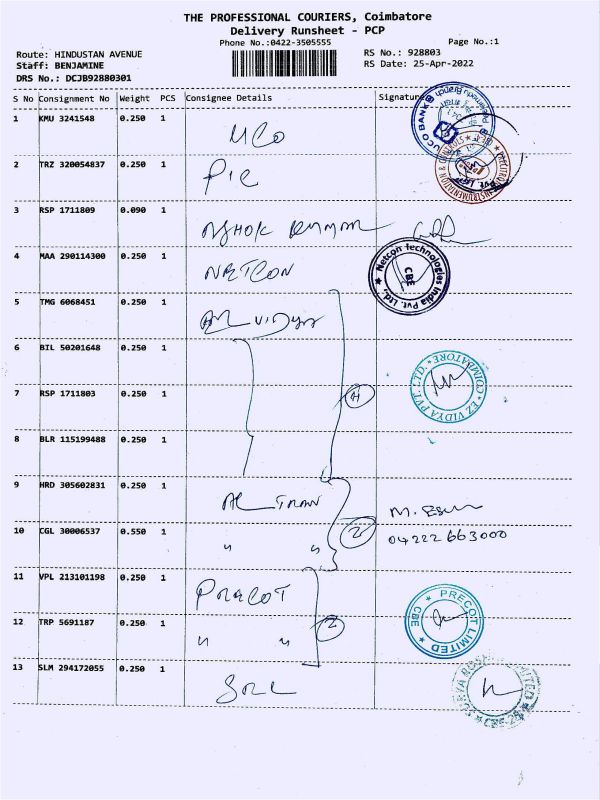 THE PROFESSIONAL COURIERS, Coimbatore
Delivery Runsheet - PCP
Phone No.:0422-3505555 Page No.:1
Route: HINDUSTAN AVENUE RS No.: 928803
Staff: BENJAMINE RS Date: 25-Apr-2022
DRS No.: DCJB92880301
S No Consignment No Weight PCS Consignee Details Signature
1 KMU 3241548 0.250 1 UCO
UCO BANK
2 TRZ 320054837 0.250 1 PIC
INSTRUMENTATION & CONTROLS
3 RSP 1711809 0.090 1 ASHOK KUMAR
4 MAA 290114300 0.250 1 NETCON
Netcon technologies India Pvt. Ltd., CBE
5 TMG 6068451 0.250 1 Vidya
6 BIL 50201648 0.250 1
EZ VIDYA PVT. LTD. COIMBATORE
7 RSP 1711803 0.250 1 4
8 BLR 115199488 0.250 1
9 HRD 305602831 0.250 1 ALTRAN
10 CGL 30006537 0.550 1 " " 2 04222 663000
11 VPL 213101198 0.250 1 PRECOT
12 TRP 5691187 0.250 1 " " 2
PRECOT LIMITED CBE
13 SLM 294172055 0.250 1